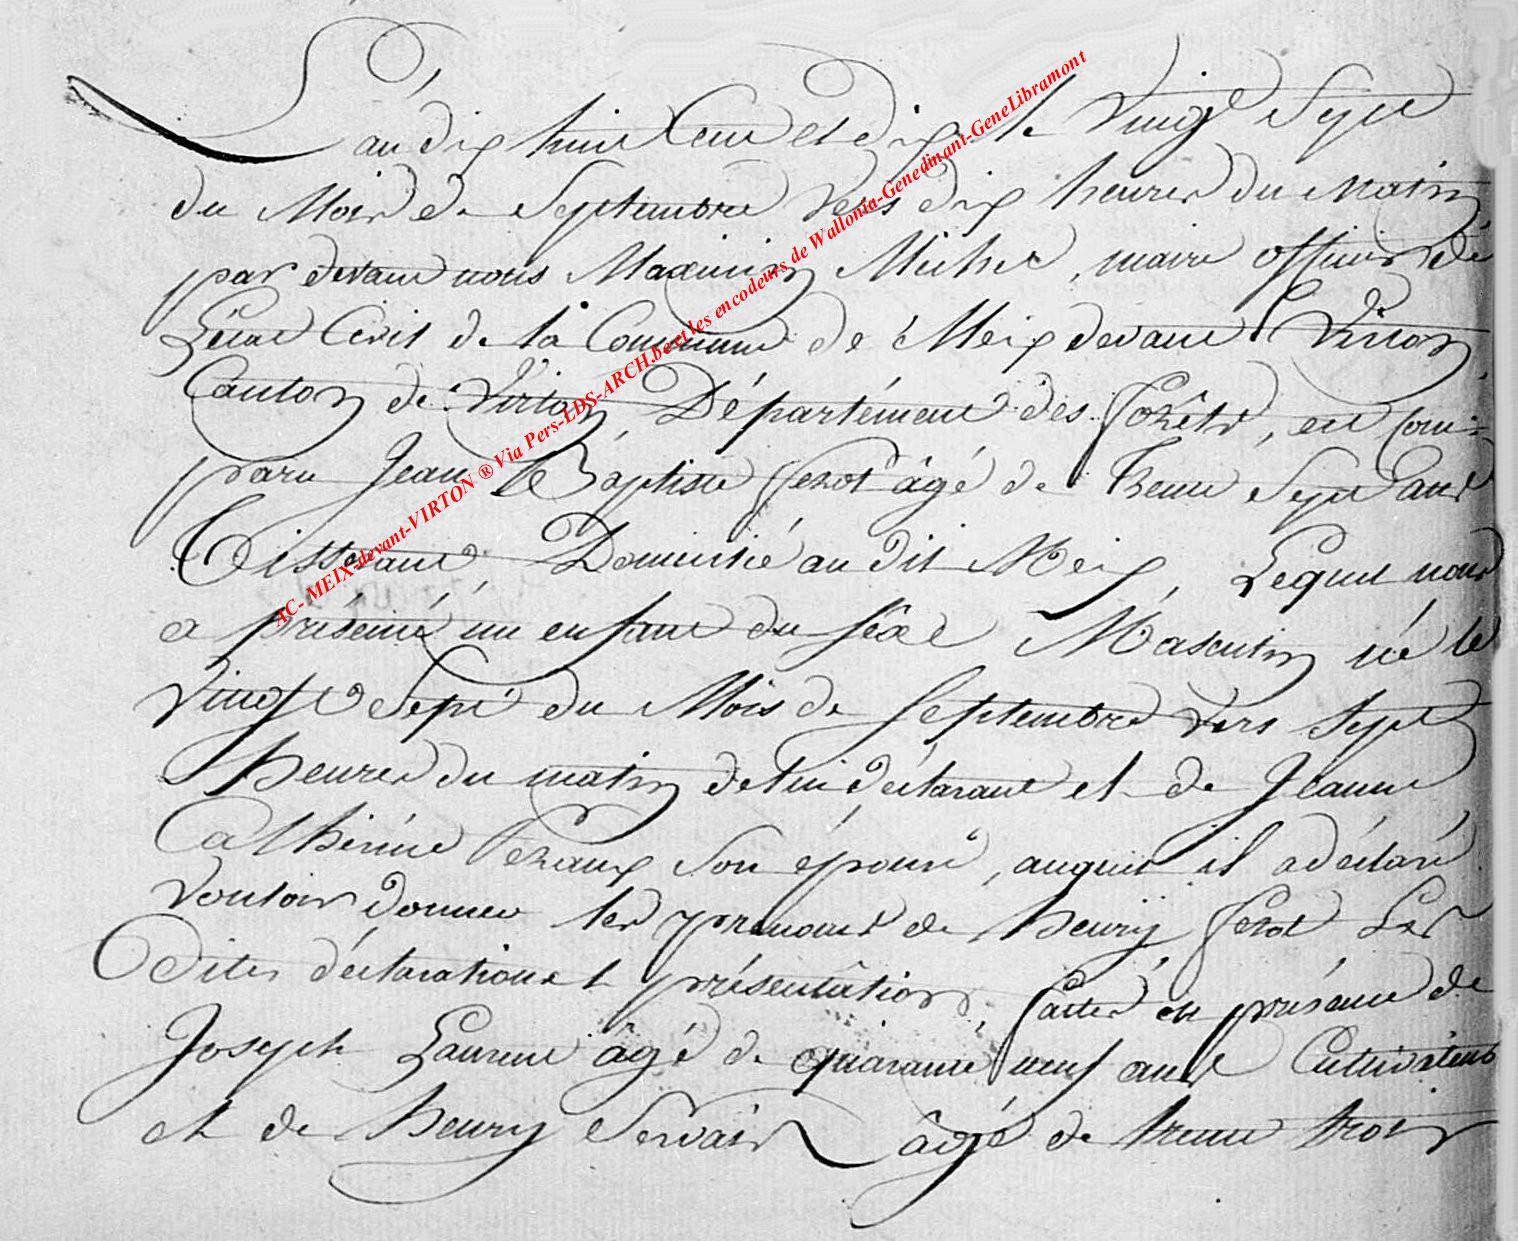 L'an dix huit Cent et dix le Vingt Sept
du Mois de Septembre Vers dix heures du Matin
par devant nous Maximin Michel, maire officier dé
L'état Civil de la Commune de Meix devant Virton
Canton de Virton, Département des forêts, est com-
paru Jean Bte Baptiste ferot âgé de Trente Sept ans
Tisserant Domicilié au dit Meix, Lequel nous
a présenté un enfant du sêxe Masculin né le
Vingt Sept du Mois de Septembre vers Sept
heures du matin de lui déclarant et de Jeanne
Cathérine son épouse, auquel il a déclaré
Vouloir donner les prenoms de henry ferot Les
Dites déclaration et présentâtion, faites en présence de
Joseph Laurent âgé de quarante neuf ans Cultivateur
et de henry Servais âgé de trente trois
AC- MEIX-devant-VIRTON ® Via Pers-LDS-ARCH.be et les encodeurs de Wallonia-Genedinant-GeneLibramont